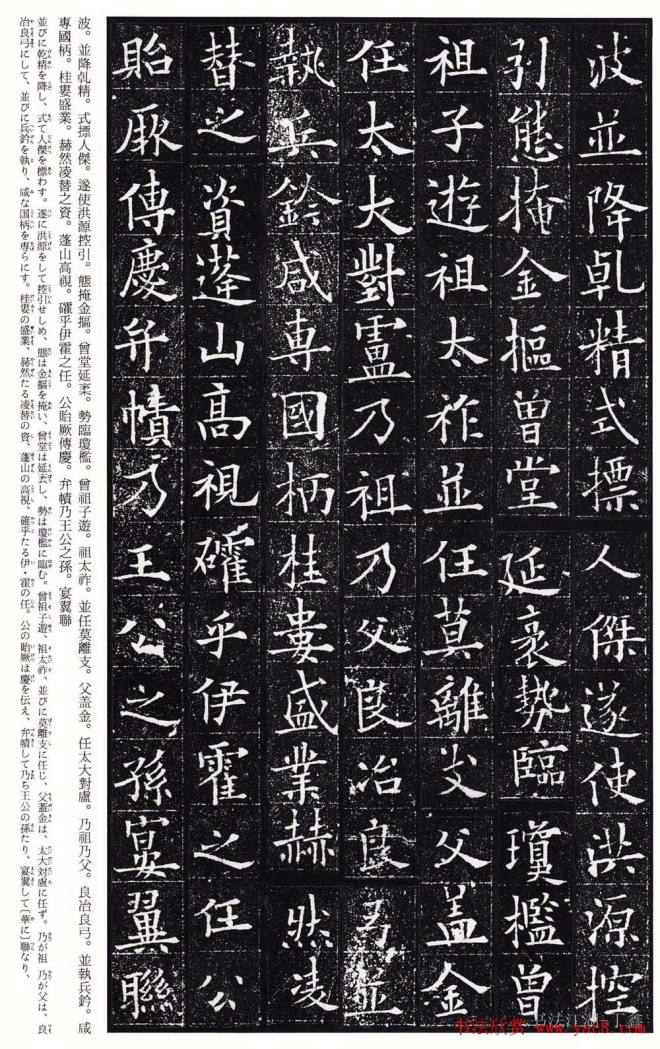 波並降乹精式標人傑遂使洪源控
引態掩金摳曾堂延袤勢臨瓊檻曾
祖子遊祖太祚並任莫離支父盖金
任太大對盧乃祖乃父良冶良弓並
執兵鈐咸專國柄桂婁盛業赫然凌
替之資蓬山高視確乎伊霍之任公
貽厥傳慶弁幘乃王公之孫宴翼聯
波。並降乹精。式標人傑。遂使洪源控引。態掩金摳。曾堂延袤。勢臨瓊檻。曾祖子遊。祖太祚。並任莫離支。父盖金。任太大對盧。乃祖乃父。良冶良弓。並執兵鈐。咸
專國柄。桂婁盛業。赫然凌替之資。蓬山高視。確乎伊霍之任。公貽厥傳慶。弁幘乃王公之孫。宴翼聯
並びに乾精を降し、式て人傑を標わす。遂に洪源をして控引せしめ、態は金摳を掩い、曾堂は延袤し、勢は瓊檻に臨む。曾祖子遊、祖太祚、並びに莫離支に任じ、父蓋金は、太大対盧に任ず。乃が祖 乃が父は、良
冶良弓にして、並びに兵鈐を執り、咸な国柄を専らにす。桂婁の盛業、赫然たる凌替の資、蓬山の高視、確乎たる伊・霍の任。公の貽厥は慶を伝え、弁幘して乃ち王公の孫たり、宴翼して〔華に〕聯なり、
书法欣赏 www.yac8.com